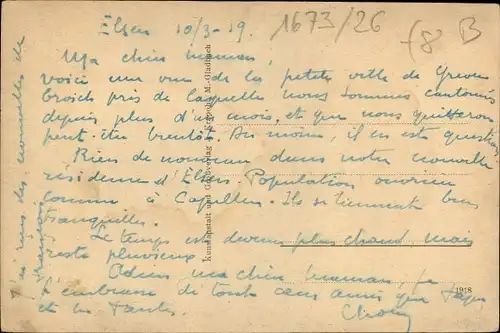 Elsen 10/3-19.
1673/26
f8 B
Ma chère maman,
voici une vue de la petite ville de Greven
broich près de laquelle nous sommes cantonnés
depuis plus d'un mois, et que nous quitterons
peut-être bientôt. Au moins, il en est question
Rien de nouveau dans notre nouvelle
résidence d'Elsen. Population ouvrière
comme à Capellen. Ils se tiennent bien
tranquilles.
Le temps est devenu plus chaud mais
reste pluvieux.
Adieu ma chère maman, je
t'embrasse de tout cœur ainsi que Papa
et les Tantes.
J'ai reçu des nouvelles de
Kunstanstalt und Verlag M.-Gladbach
1918